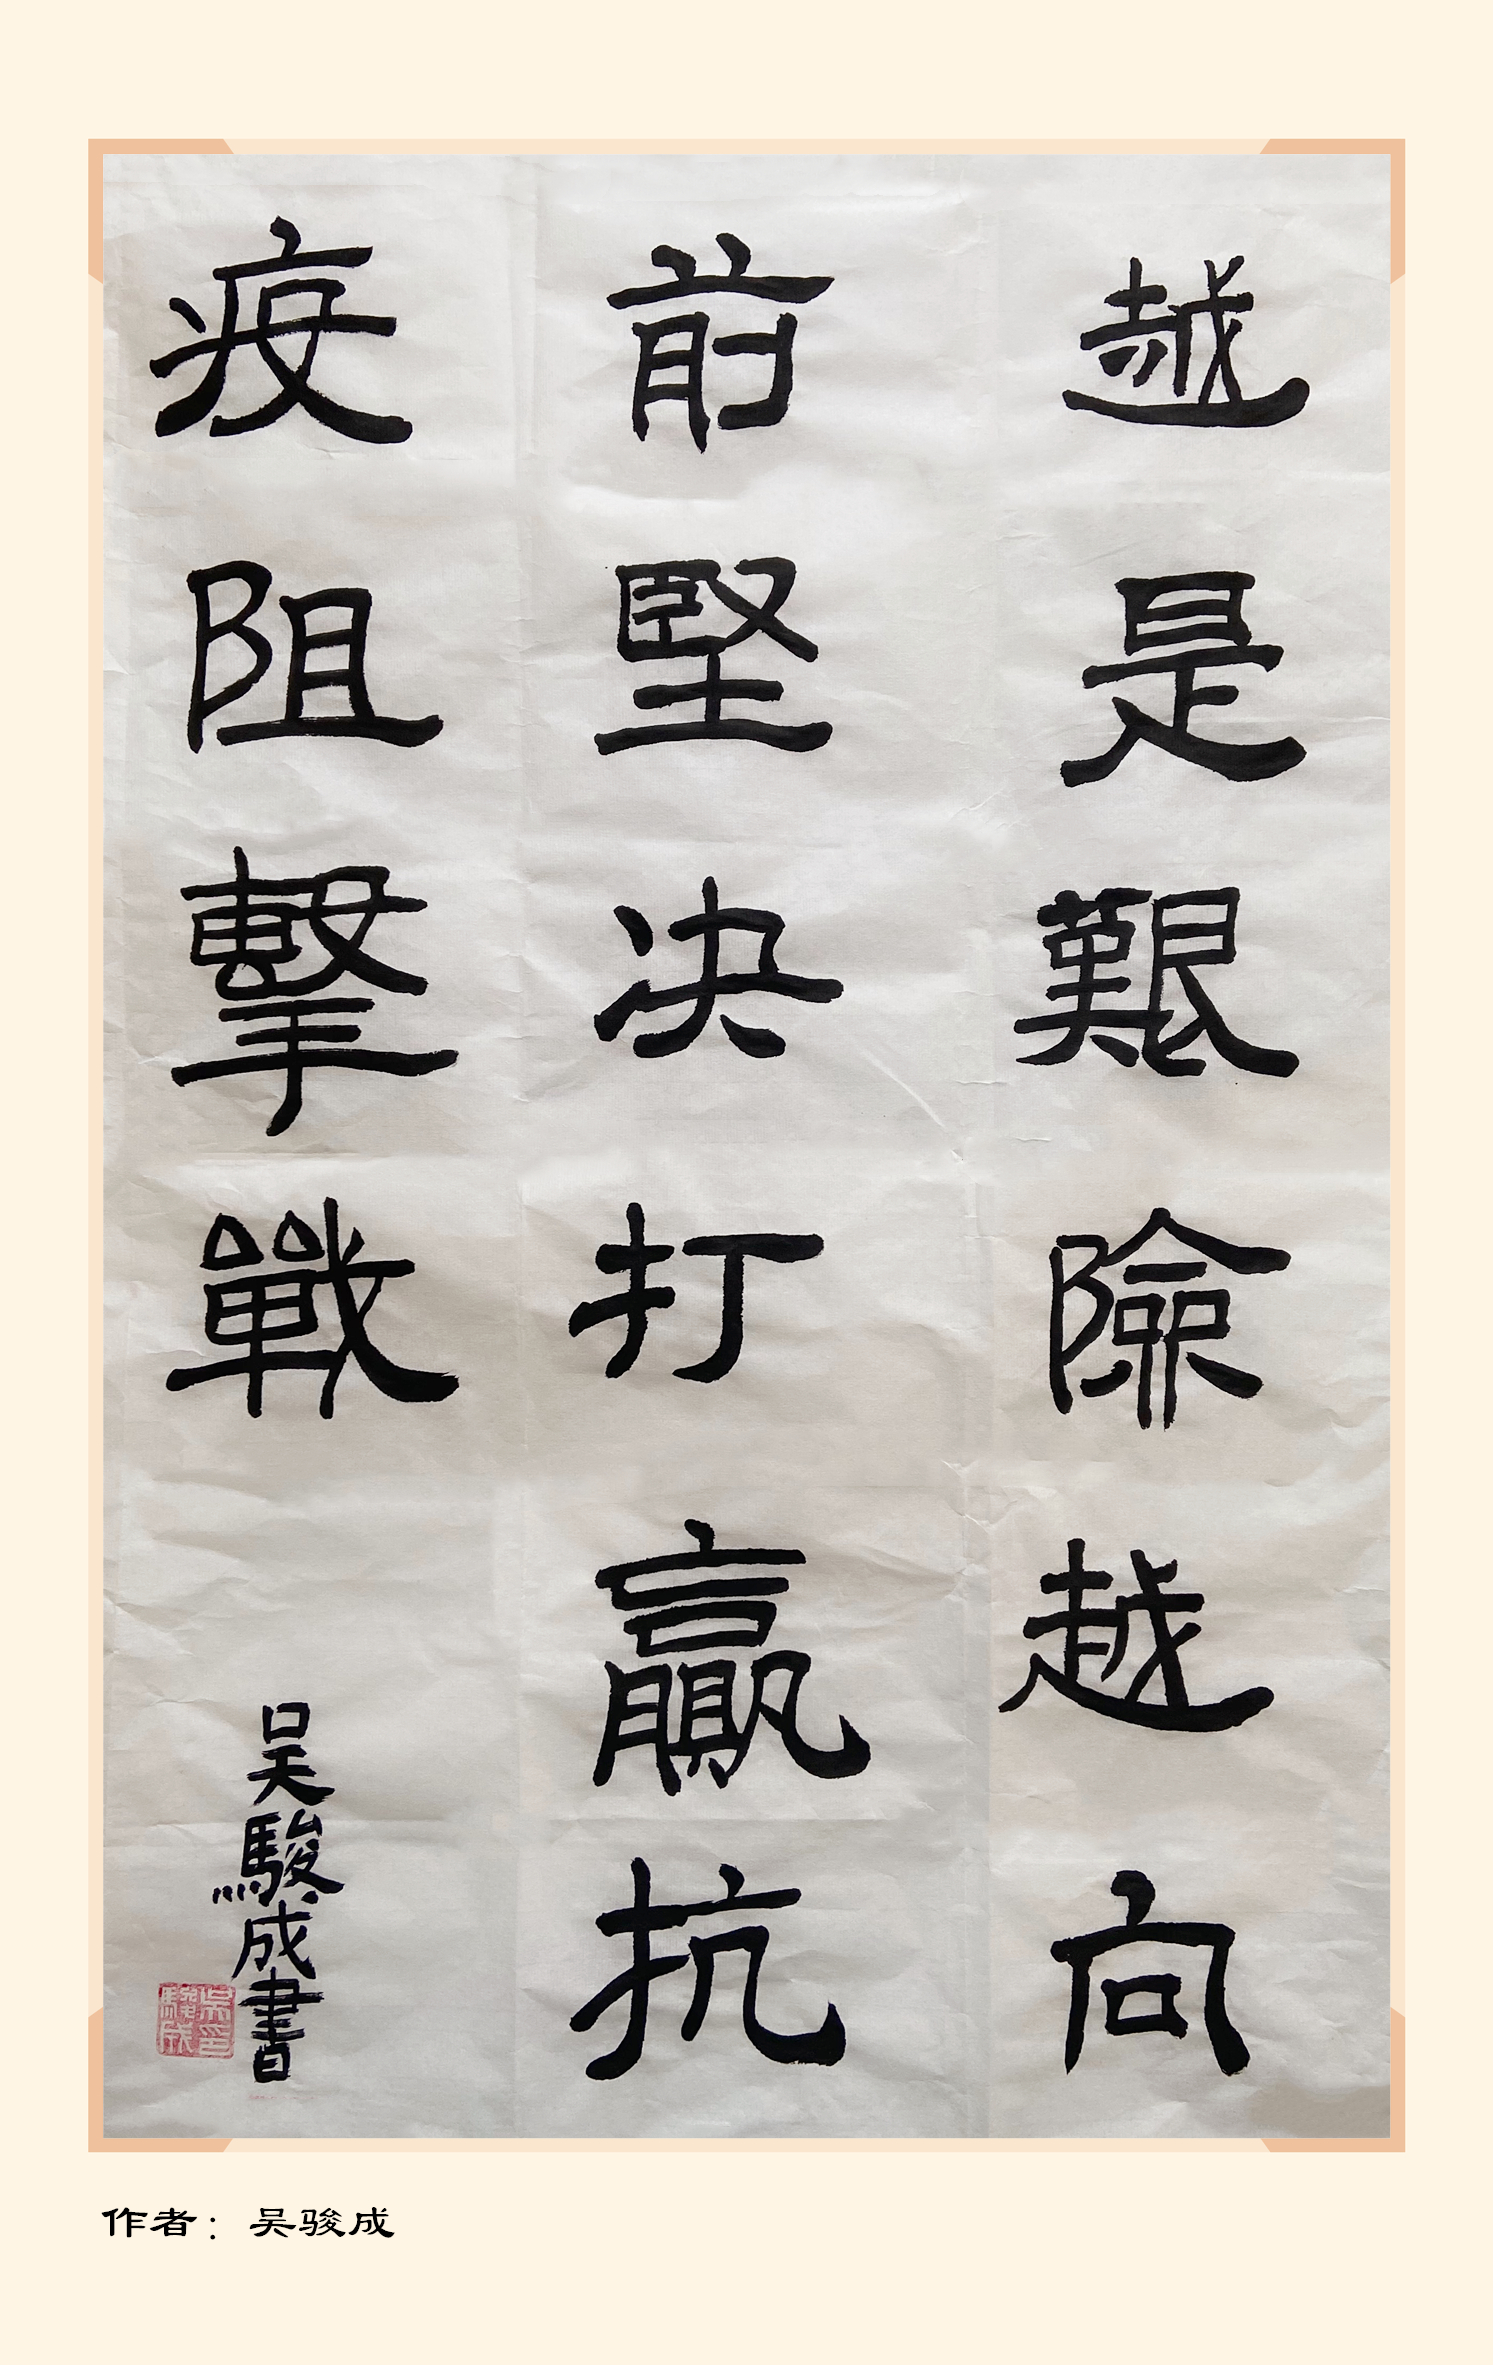 越是艱險越向
前堅决打贏抗
疫阻擊戰
吴駿成書
吴印駿成
作者：吴骏成